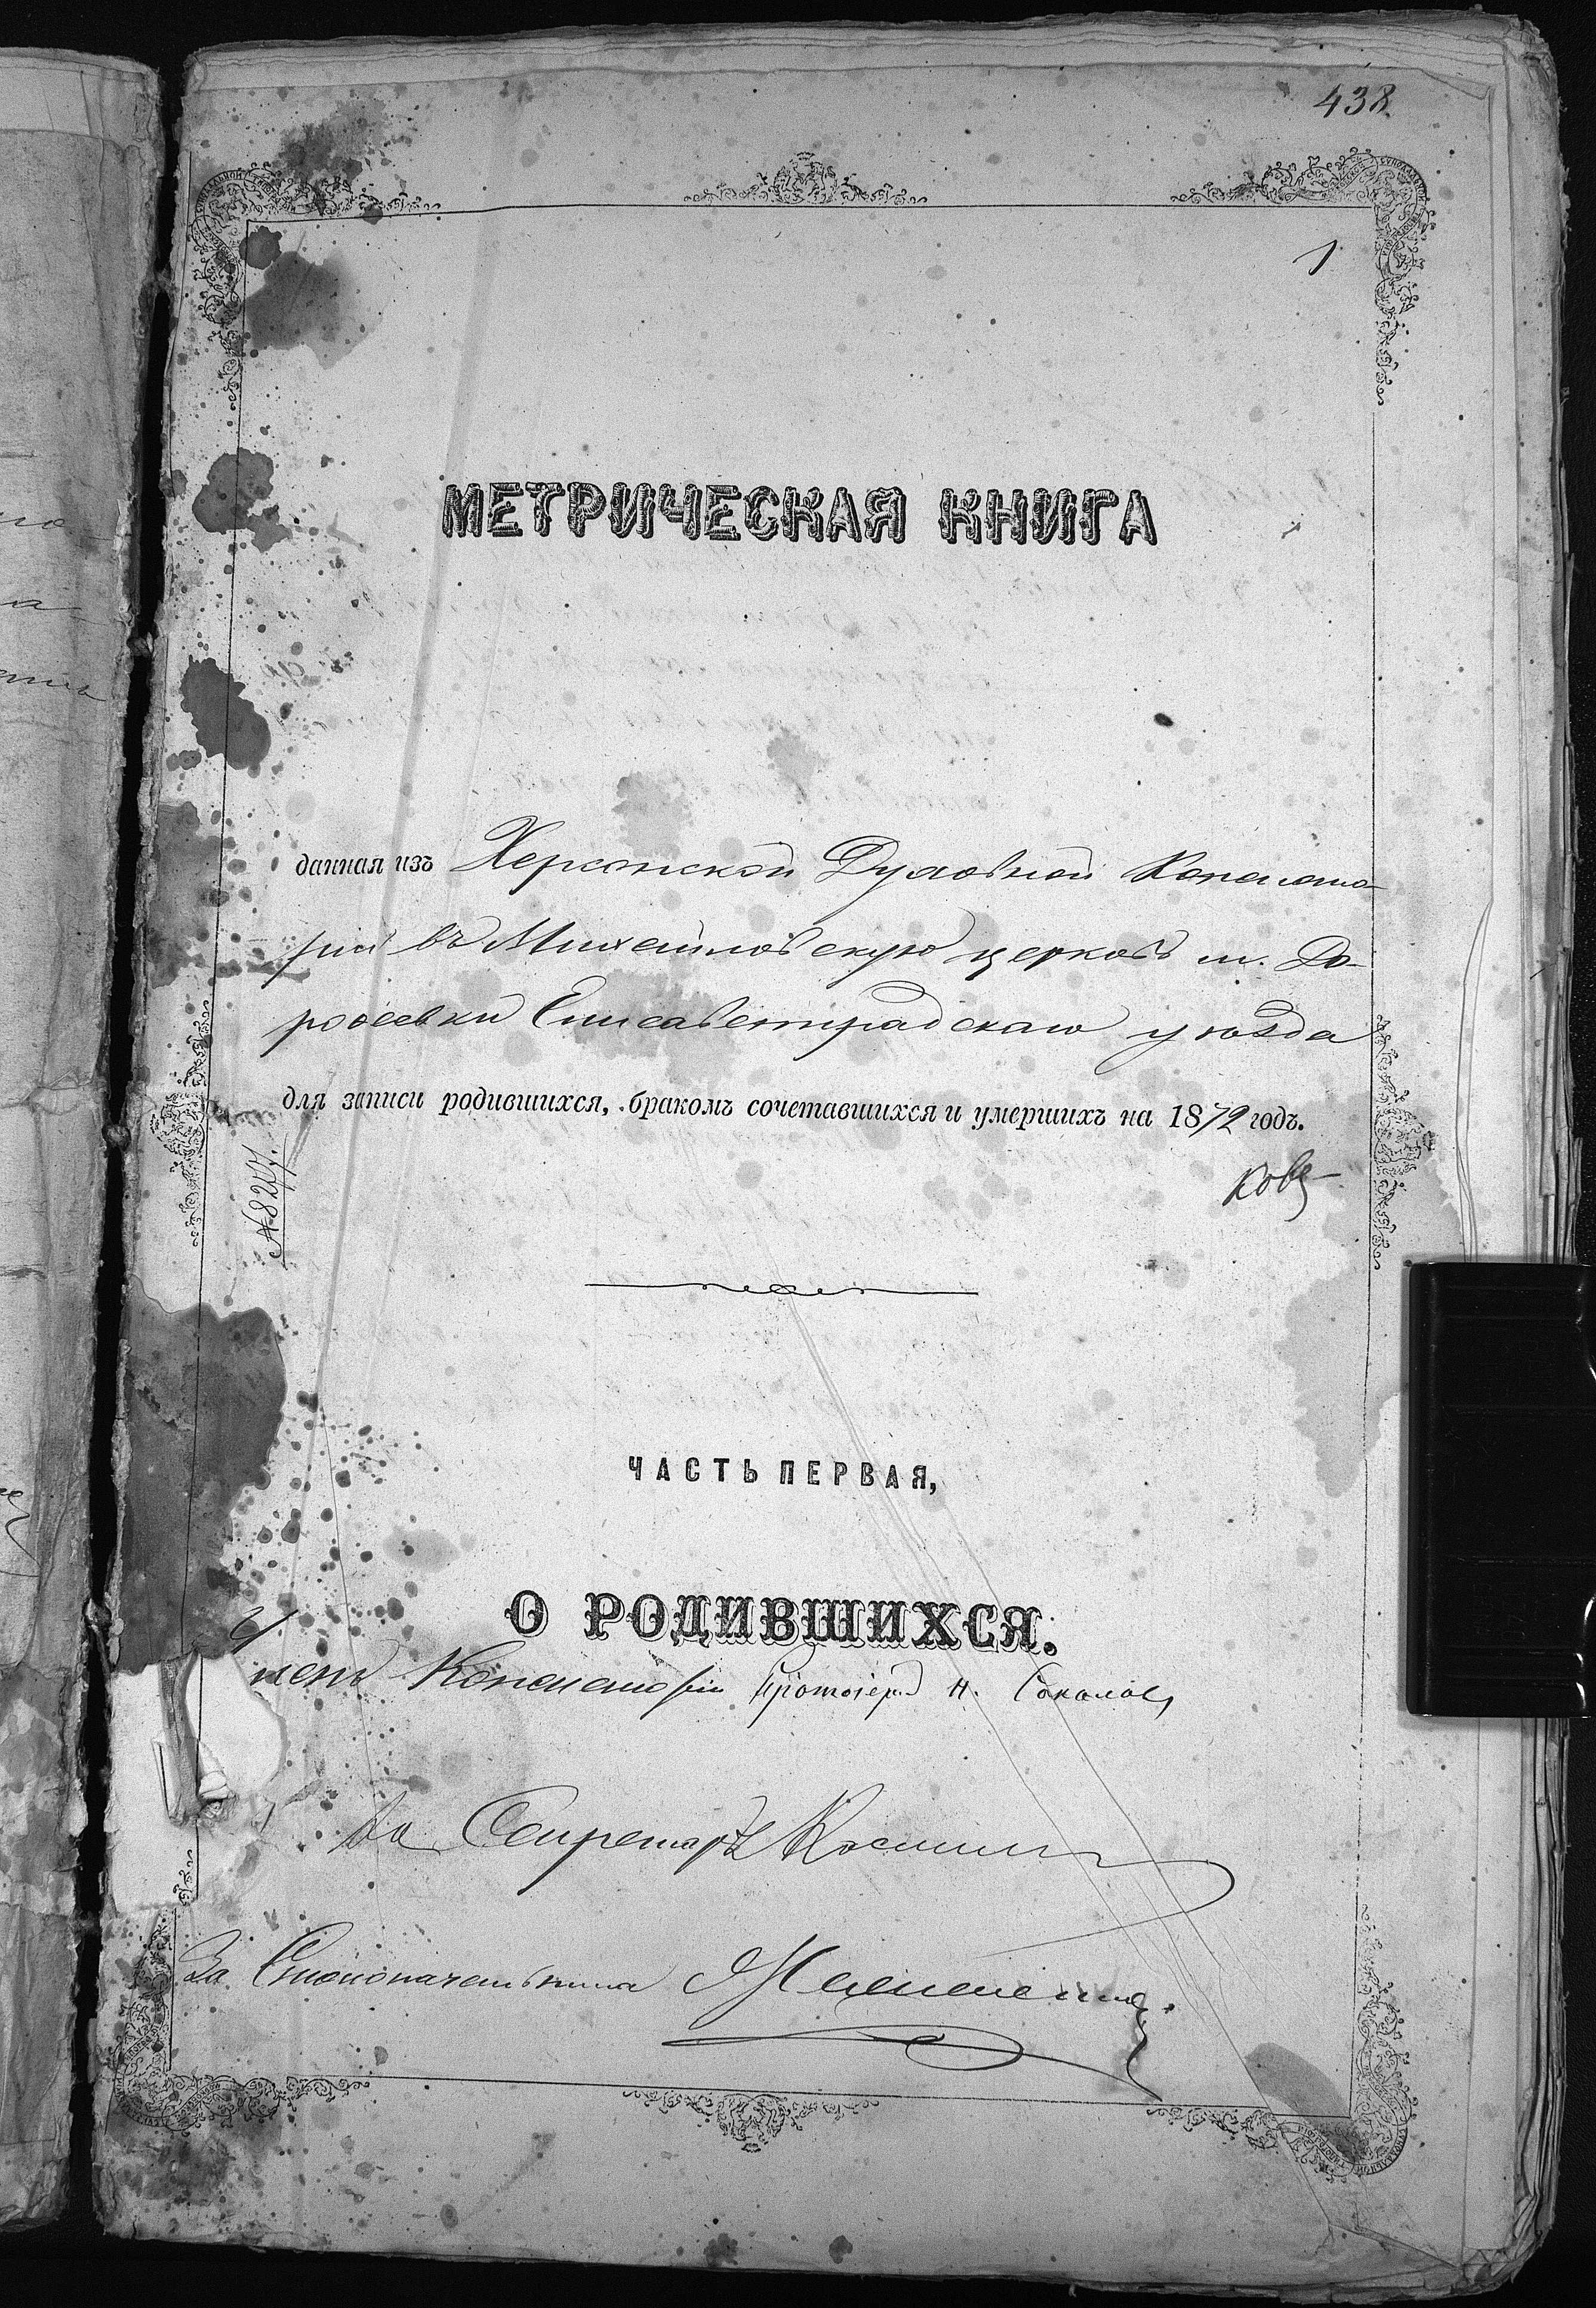 438
1
МЕТРИЧЕСКАЯ КНИГА
данная изъ Херсонской Духовной Консисто-
ріи въ Михайловскую церковь м. До-
роѳеевки Елисаветградскаго уѣзда
для записи родившихся, бракомъ сочетавшихся и умершихъ на 1872 годъ.
№ 8277.
ЧАСТЬ ПЕРВАЯ,
О РОДИВШИХСЯ.
Членъ Консисторіи Протоіерей Н. Соколовъ
За Секретаря
За Столоначальника